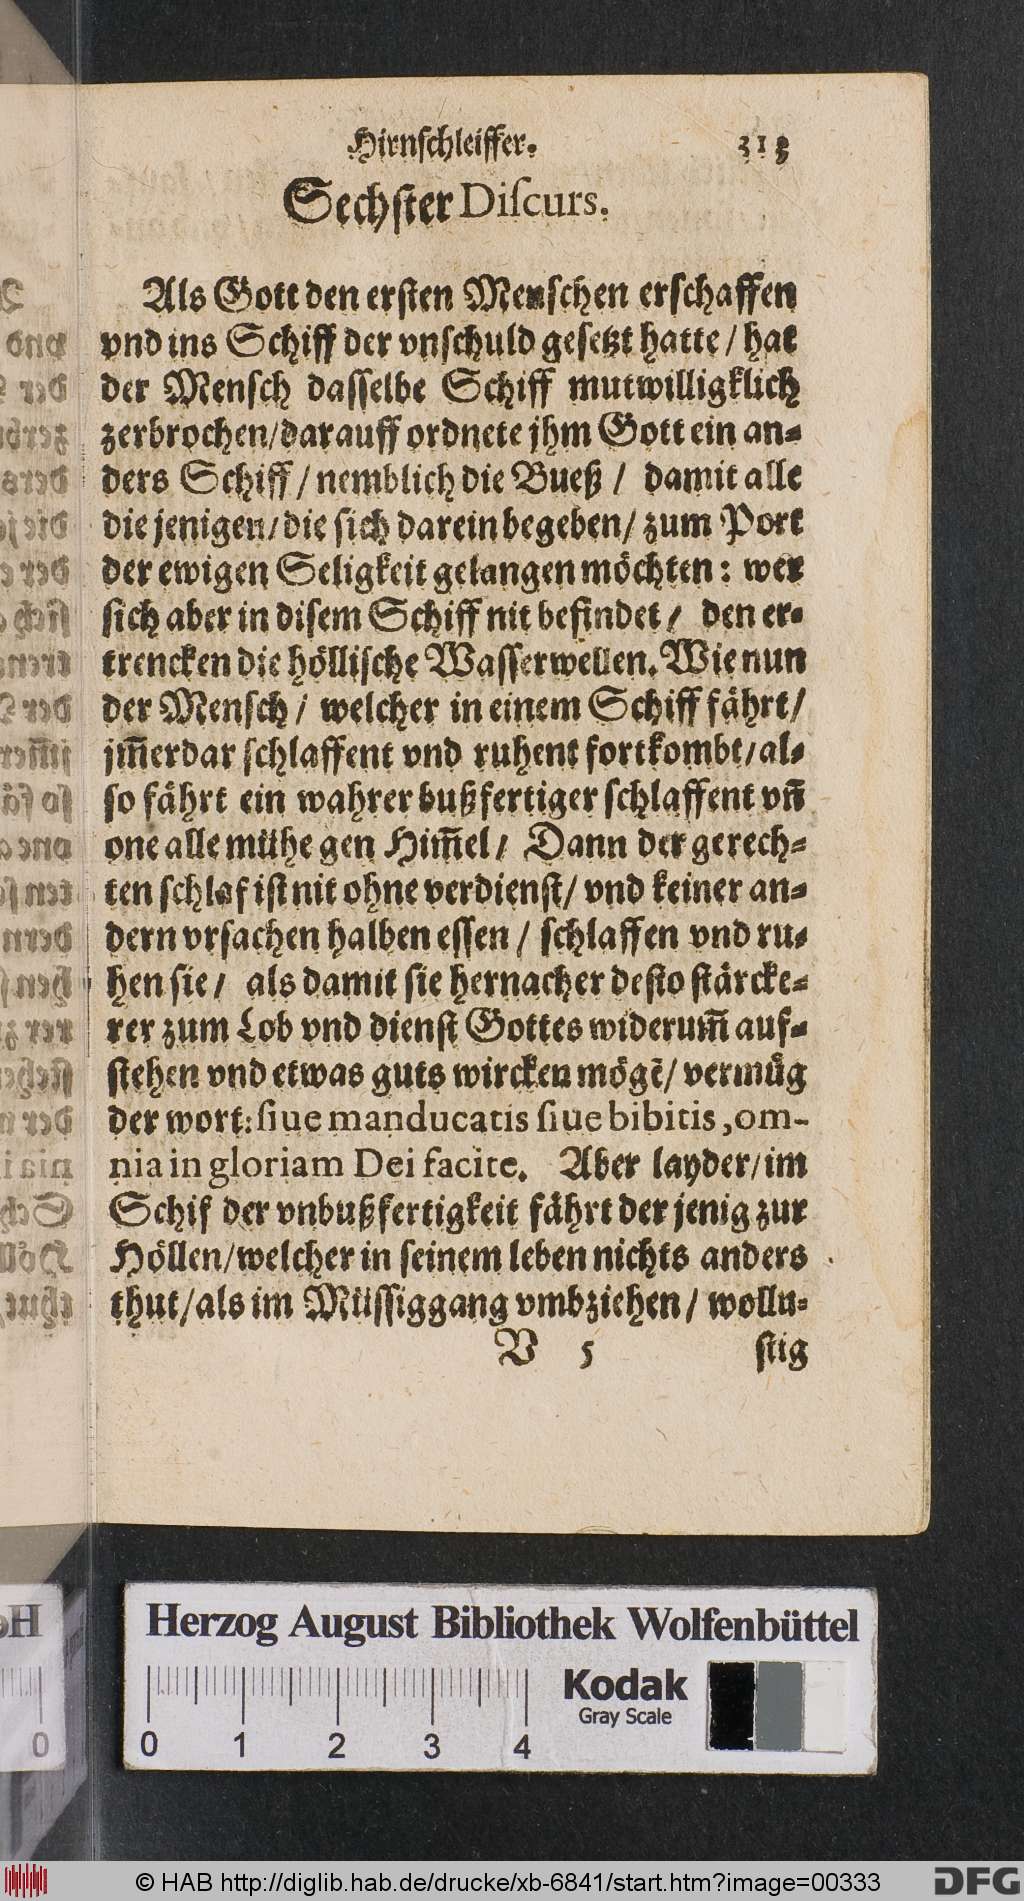 Hirnschleiffer. 313
Sechster Diſcurs.
Als Gott den ersten Menschen erschaffen
vnd ins Schiff der vnschuld gesetzt hatte / hat
der Mensch dasselbe Schiff mutwilligklich
zerbrochen/darauff ordnete jhm Gott ein an-
ders Schiff / nemblich die Bueß / damit alle
die jenigen/die sich darein begeben/ zum Port
der ewigen Seligkeit gelangen möchten: wer
sich aber in disem Schiff nit befindet / den er-
trencken die höllische Wasserwellen. Wie nun
der Mensch / welcher in einem Schiff fährt/
jm̃erdar schlaffent vnd ruhent fortkombt/al-
so fährt ein wahrer bußfertiger schlaffent vñ
one alle mühe gen Him̃el / Dann der gerech-
ten schlaf ist nit ohne verdienst/ vnd keiner an-
dern vrsachen halben essen / schlaffen vnd ru-
hen sie / als damit sie hernacher desto stärcke-
rer zum Lob vnd dienst Gottes widerum̃ auf-
stehen vnd etwas guts wircken mögẽ/ vermüg
der wort: ſiue manducatis ſiue bibitis, om-
nia in gloriam Dei facite. Aber layder/im
Schif der vnbußfertigkeit fährt der jenig zur
Höllen/welcher in seinem leben nichts anders
thut/als im Müssiggang vmbziehen / wollu-
V 5 stig
Herzog August Bibliothek Wolfenbüttel
Kodak
Gray Scale
0 1 2 3 4
© HAB http://diglib.hab.de/drucke/xb-6841/start.htm?image=00333
DFG